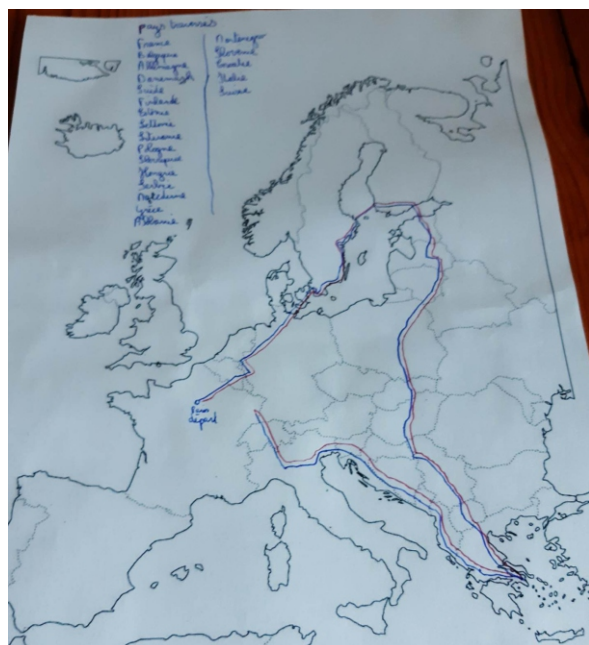 pays traversés
France
Belgique
Allemagne
Danemark
Suède
Finlande
Estonie
Lettonie
Lituanie
Pologne
Slovaquie
Hongrie
Serbie
Macédoine
Grèce
Albanie
Montenegro
Slovenie
Croatie
Italie
Suisse
départ